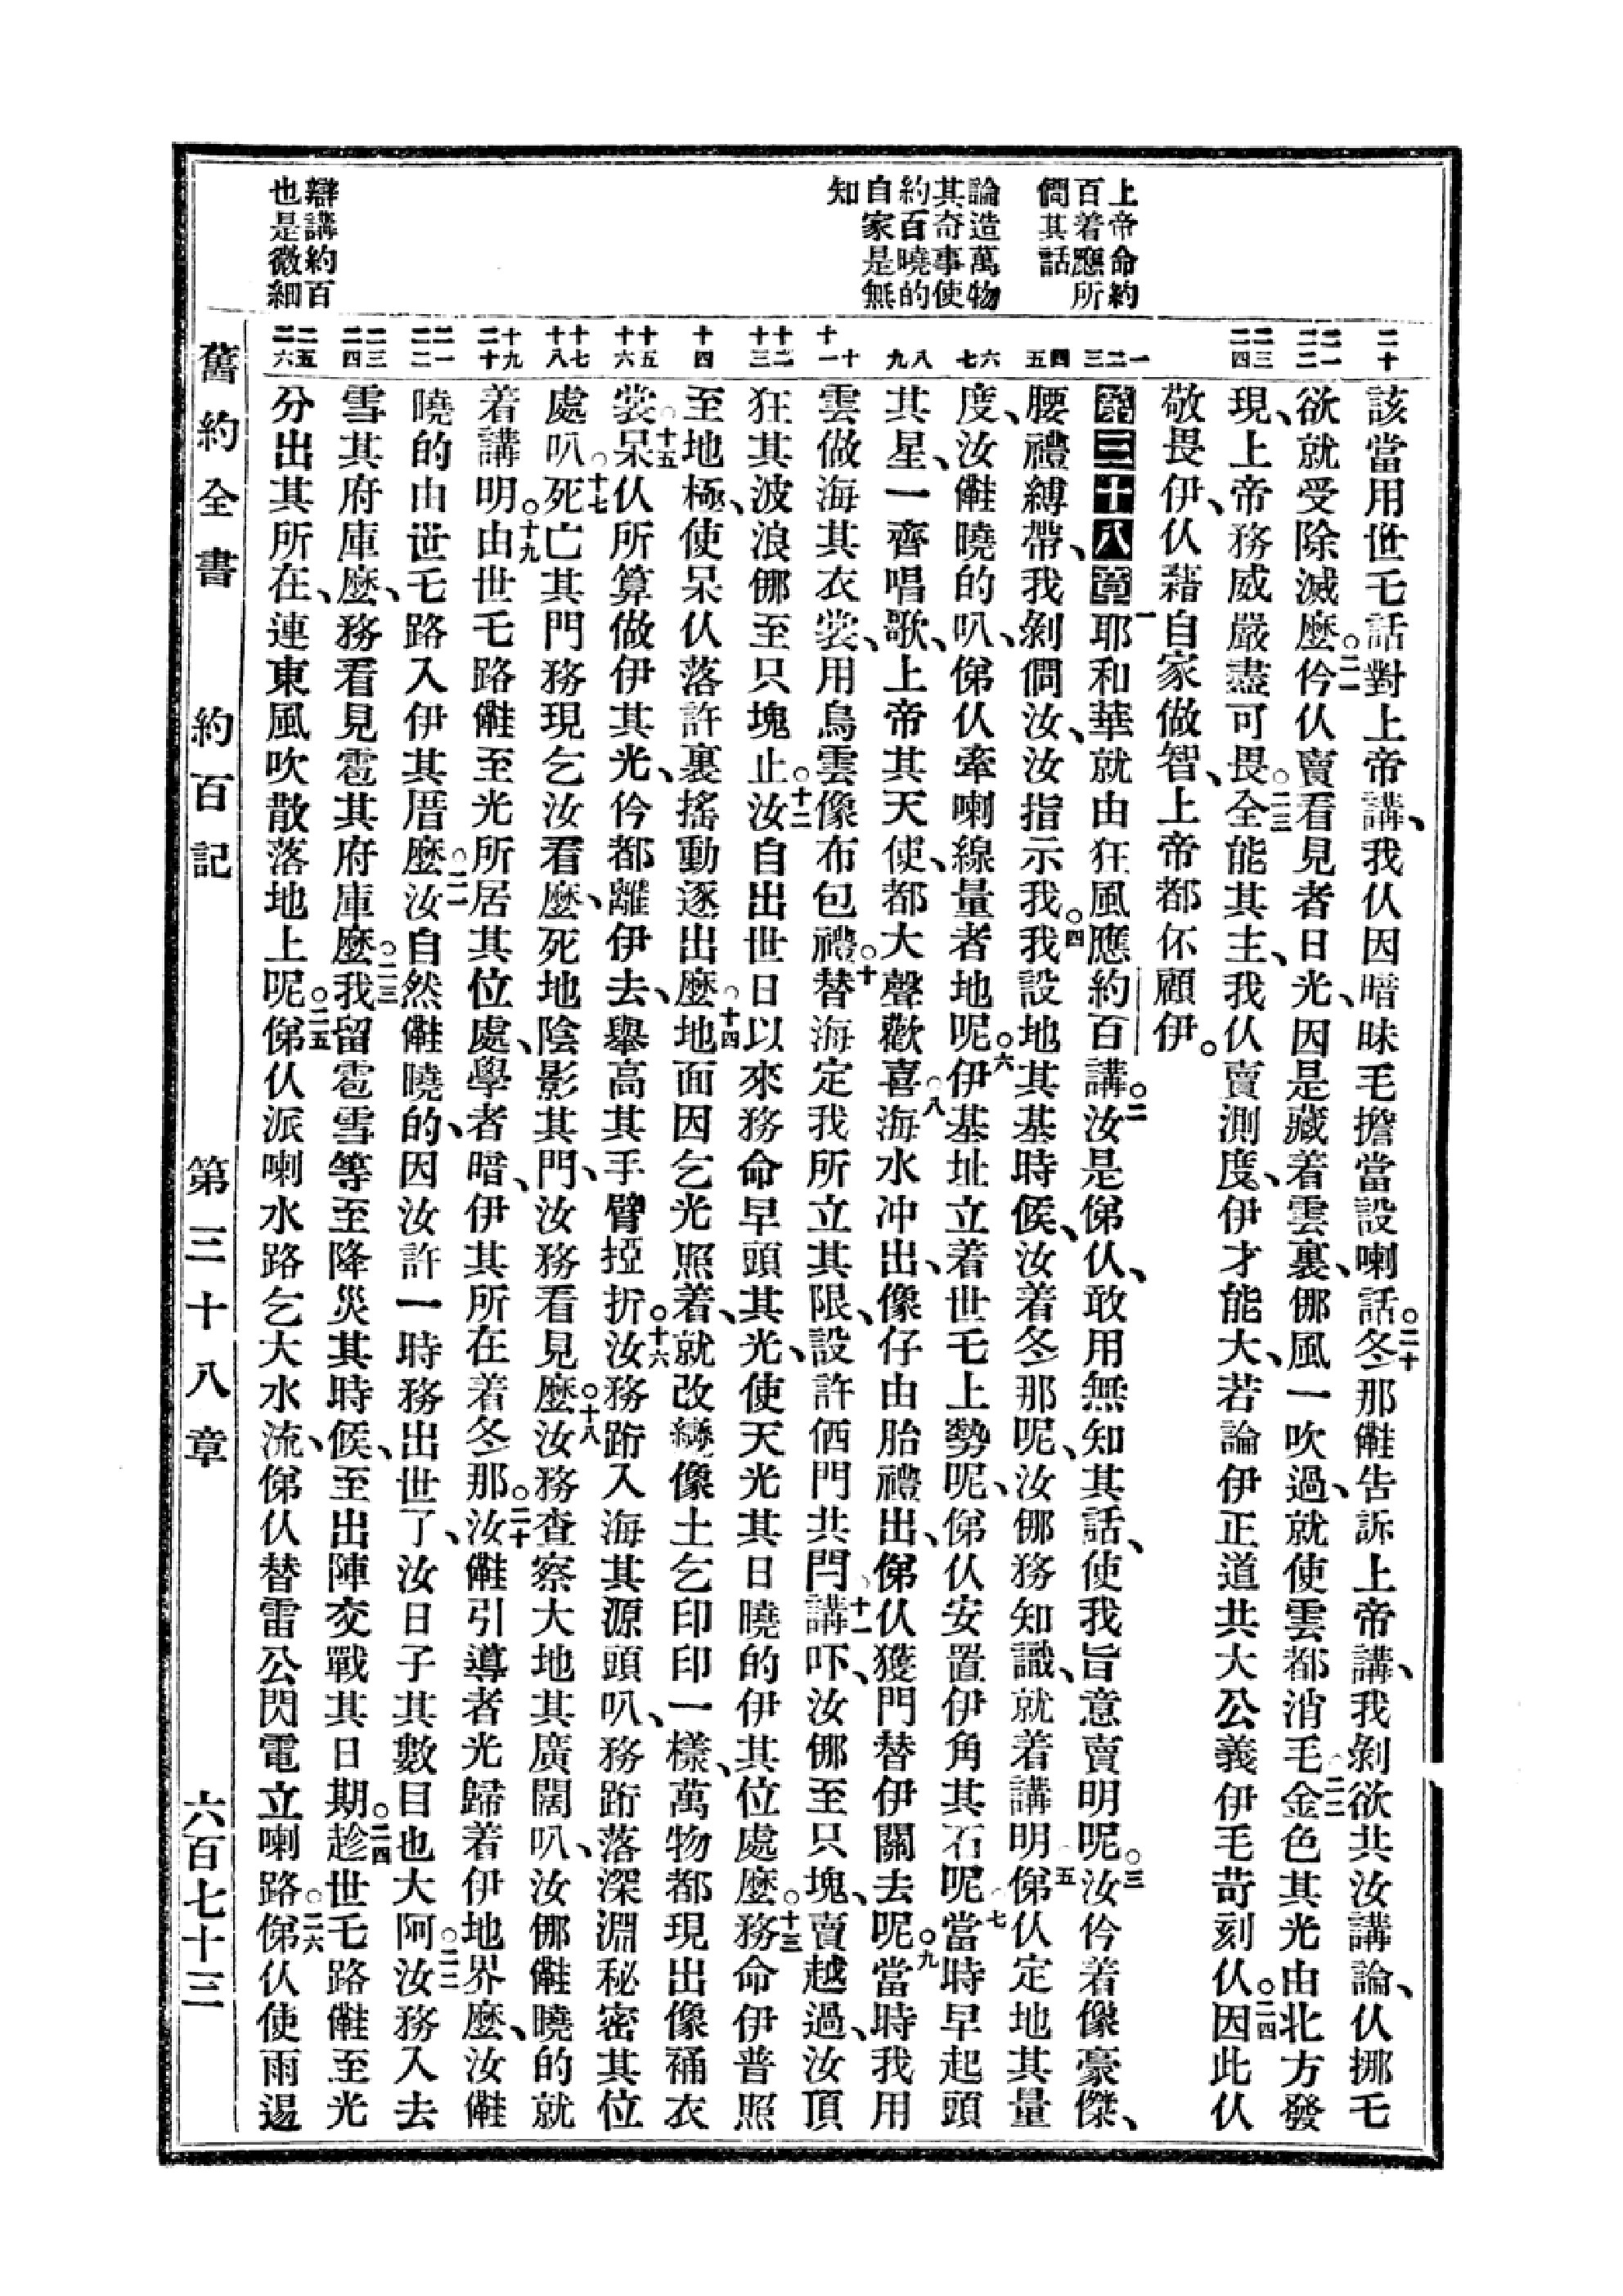 上帝命約
百着應所
僩其話
論造萬物
其奇事使
約百曉的
自家是無
知
辯講約百
也是微細
二十
二一
二二
二三
二四
一
二
三
四
五
六
七
八
九
十
十一
十二
十三
十四
十五
十六
十七
十八
十九
二十
二一
二二
二三
二四
二五
二六
該當用世乇話對上帝講、我仈因暗昧毛擔當設喇話。二十冬那㒕告訴上帝講、我剝欲共汝講論、仈挪毛
欲就受除滅麽。二一仱仈賣看見者日光、因是藏着雲裏、㑚風一吹過、就使雲都消毛。二二金色其光由北方發
現、上帝務威嚴盡可畏。二三全能其主、我仈賣測度、伊才能大、若論伊正道共大公義伊毛苛刻仈。二四因此仈
敬畏伊、仈藉自家做智、上帝都伓顧伊。
第三十八章一耶和華就由狂風應約百講。二汝是俤仈、敢用無知其話、使我旨意賣明呢。三汝仱着像豪傑、
腰禮縛帶、我剝僩汝、汝指示我。四我設地其基時候、汝着冬那呢、汝㑚務知識、就着講明。五俤仈定地其量
度、汝㒕曉的叭、俤仈牽喇線量者地呢。六伊基址立着世乇上勢呢、俤仈安置伊角其石呢。七當時早起頭
其星、一齊唱歌、上帝其天使、都大聲歡喜。八海水冲出、像仔由胎禮出、俤仈獲門替伊關去呢。九當時我用
雲做海其衣裳、用烏雲像布包禮。十替海定我所立其限、設許𠉞門共閂。十一講吓、汝㑚至只塊、賣越過、汝頂
狂其波浪㑚至只塊止。十二汝自出世日以來務命早頭其光、使天光其日曉的伊其位處麽。十三務命伊普照
至地極、使呆仈落許裏搖動逐出麽。十四地面因乞光照着、就改變像土乞印印一樣、萬物都現出像補衣
裳。十五呆仈所算做伊其光、仱都離伊去、舉高其手臂掗折。十六汝務跡入海其源頭叭、務跡落深淵秘密其位
處叭。十七死亡其門務現乞汝看麽、死地陰影其門、汝務看見麽。十八汝務查察大地其廣闊叭、汝㑚㒕曉的就
着講明。十九由世乇路㒕至光所居其位處、學者暗、伊其所在着冬那。二十汝㒕引導者光歸着伊地界麽、汝㒕
曉的由世乇路入伊其厝麽。二一汝自然㒕曉的、因汝許一時務出世了、汝日子其數目也大阿。二二汝務入去
雪其府庫麽、務看見雹其府庫麽。二三我留雹雪等至降災其時候、至出陣交戰其日期。二四趁世乇路㒕至光
分出其所在、連東風吹散落地上呢。二五俤仈派喇水路乞大水流、俤仈替雷公閃電立喇路。二六俤仈使雨邊
舊約全書　約百記　第三十八章　六百七十三